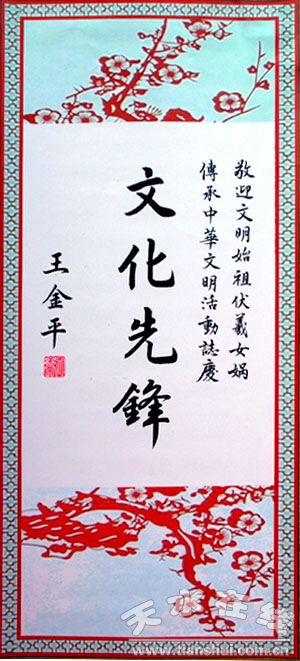 敬迎文明始祖伏羲女媧
傳承中華文明活動誌慶
文化先鋒
王金平
天水在线
www.tianshui.com.cn